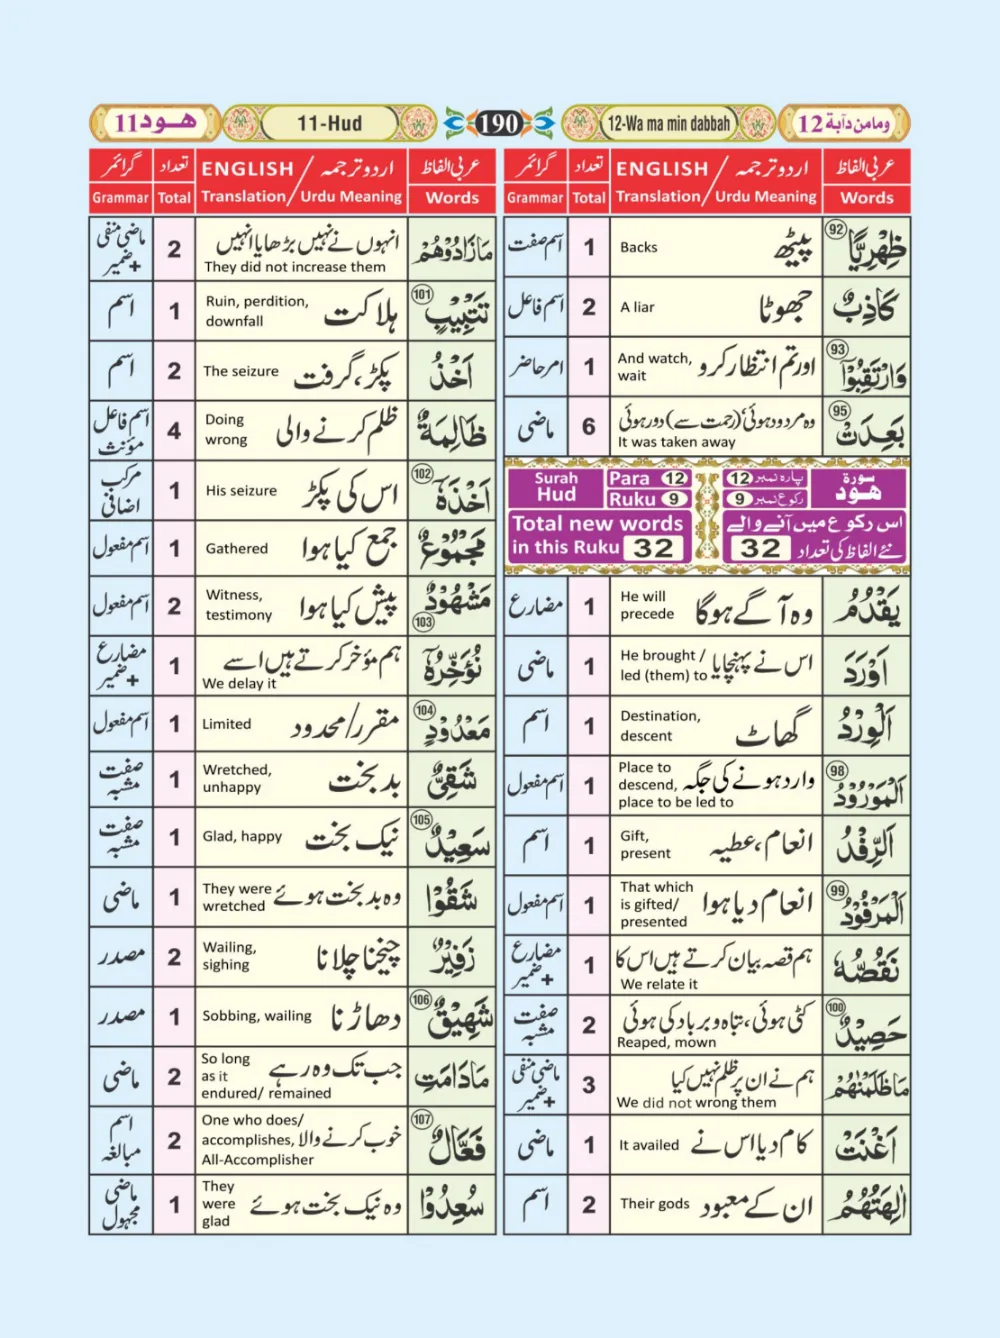 هود 11
11-Hud
190
12-Wa ma min dabbah
ومامن دآبة 12
عربی الفاظ اردو ترجمہ / ENGLISH تعداد گرائمر
Words Urdu Meaning / Translation Total Grammar
92 ظِهْرِيًّا پیٹھ Backs 1 اسم صفت
كَاذِبٌ جھوٹا A liar 2 اسم فاعل
93 وَارْتَقِبُوْٓا اور تم انتظار کرو And watch, wait 1 امر حاضر
95 بَعِدَتْ وہ مردود ہوئی‘ (رحمت سے) دور ہوئی It was taken away 6 ماضی
Surah Hud Para 12 Ruku 9
سورة هود پارہ نمبر 12 رکوع نمبر 9
Total new words in this Ruku 32
اس رکوع میں آنے والے نئے الفاظ کی تعداد 32
يَقْدُمُ وہ آگے ہوگا He will precede 1 مضارع
اَوْرَدَ اس نے پہنچایا He brought / led (them) to 1 ماضی
اَلْوِرْدُ گھاٹ Destination, descent 1 اسم
98 اَلْمَوْرُوْدُ وارد ہونے کی جگہ Place to descend, place to be led to 1 اسم مفعول
اَلرِّفْدُ انعام، عطیہ Gift, present 1 اسم
99 اَلْمَرْفُوْدُ انعام دیا ہوا That which is gifted/ presented 1 اسم مفعول
نَقُصُّهٗ ہم قصہ بیان کرتے ہیں اس کا We relate it 1 مضارع + ضمیر
100 حَصِيْدٌ کٹی ہوئی، تباہ و برباد کی ہوئی Reaped, mown 2 صفت مشبہ
مَا ظَلَمْنٰهُمْ ہم نے ان پر ظلم نہیں کیا We did not wrong them 3 ماضی منفی + ضمیر
اَغْنَتْ کام دیا اس نے It availed 1 ماضی
اٰلِهَتُهُمُ ان کے معبود Their gods 2 اسم
عربی الفاظ اردو ترجمہ / ENGLISH تعداد گرائمر
Words Urdu Meaning / Translation Total Grammar
مَا زَادُوْهُمْ انہوں نے نہیں بڑھایا انہیں They did not increase them 2 ماضی منفی + ضمیر
101 تَتْبِيْبٍ ہلاکت Ruin, perdition, downfall 1 اسم
اَخْذُ پکڑ، گرفت The seizure 2 اسم
ظَالِمَةٌ ظلم کرنے والی Doing wrong 4 اسم فاعل مؤنث
102 اَخْذَهٗٓ اس کی پکڑ His seizure 1 مرکب اضافی
مَجْمُوْعٌ جمع کیا ہوا Gathered 1 اسم مفعول
103 مَشْهُوْدٌ پیش کیا ہوا Witness, testimony 2 اسم مفعول
نُؤَخِّرُهٗٓ ہم مؤخر کرتے ہیں اسے We delay it 1 مضارع + ضمیر
104 مَعْدُوْدٍ مقرر/محدود Limited 1 اسم مفعول
شَقِيٌّ بدبخت Wretched, unhappy 1 صفت مشبہ
105 سَعِيْدٌ نیک بخت Glad, happy 1 صفت مشبہ
شَقُوْا وہ بدبخت ہوئے They were wretched 1 ماضی
زَفِيْرٌ چیخنا چلانا Wailing, sighing 2 مصدر
106 شَهِيْقٌ دھاڑنا Sobbing, wailing 1 مصدر
مَا دَامَتِ جب تک وہ رہے So long as it endured/ remained 2 ماضی
107 فَعَّالٌ خوب کرنے والا One who does/ accomplishes, All-Accomplisher 2 اسم مبالغہ
سُعِدُوْا وہ نیک بخت ہوئے They were glad 1 ماضی مجہول